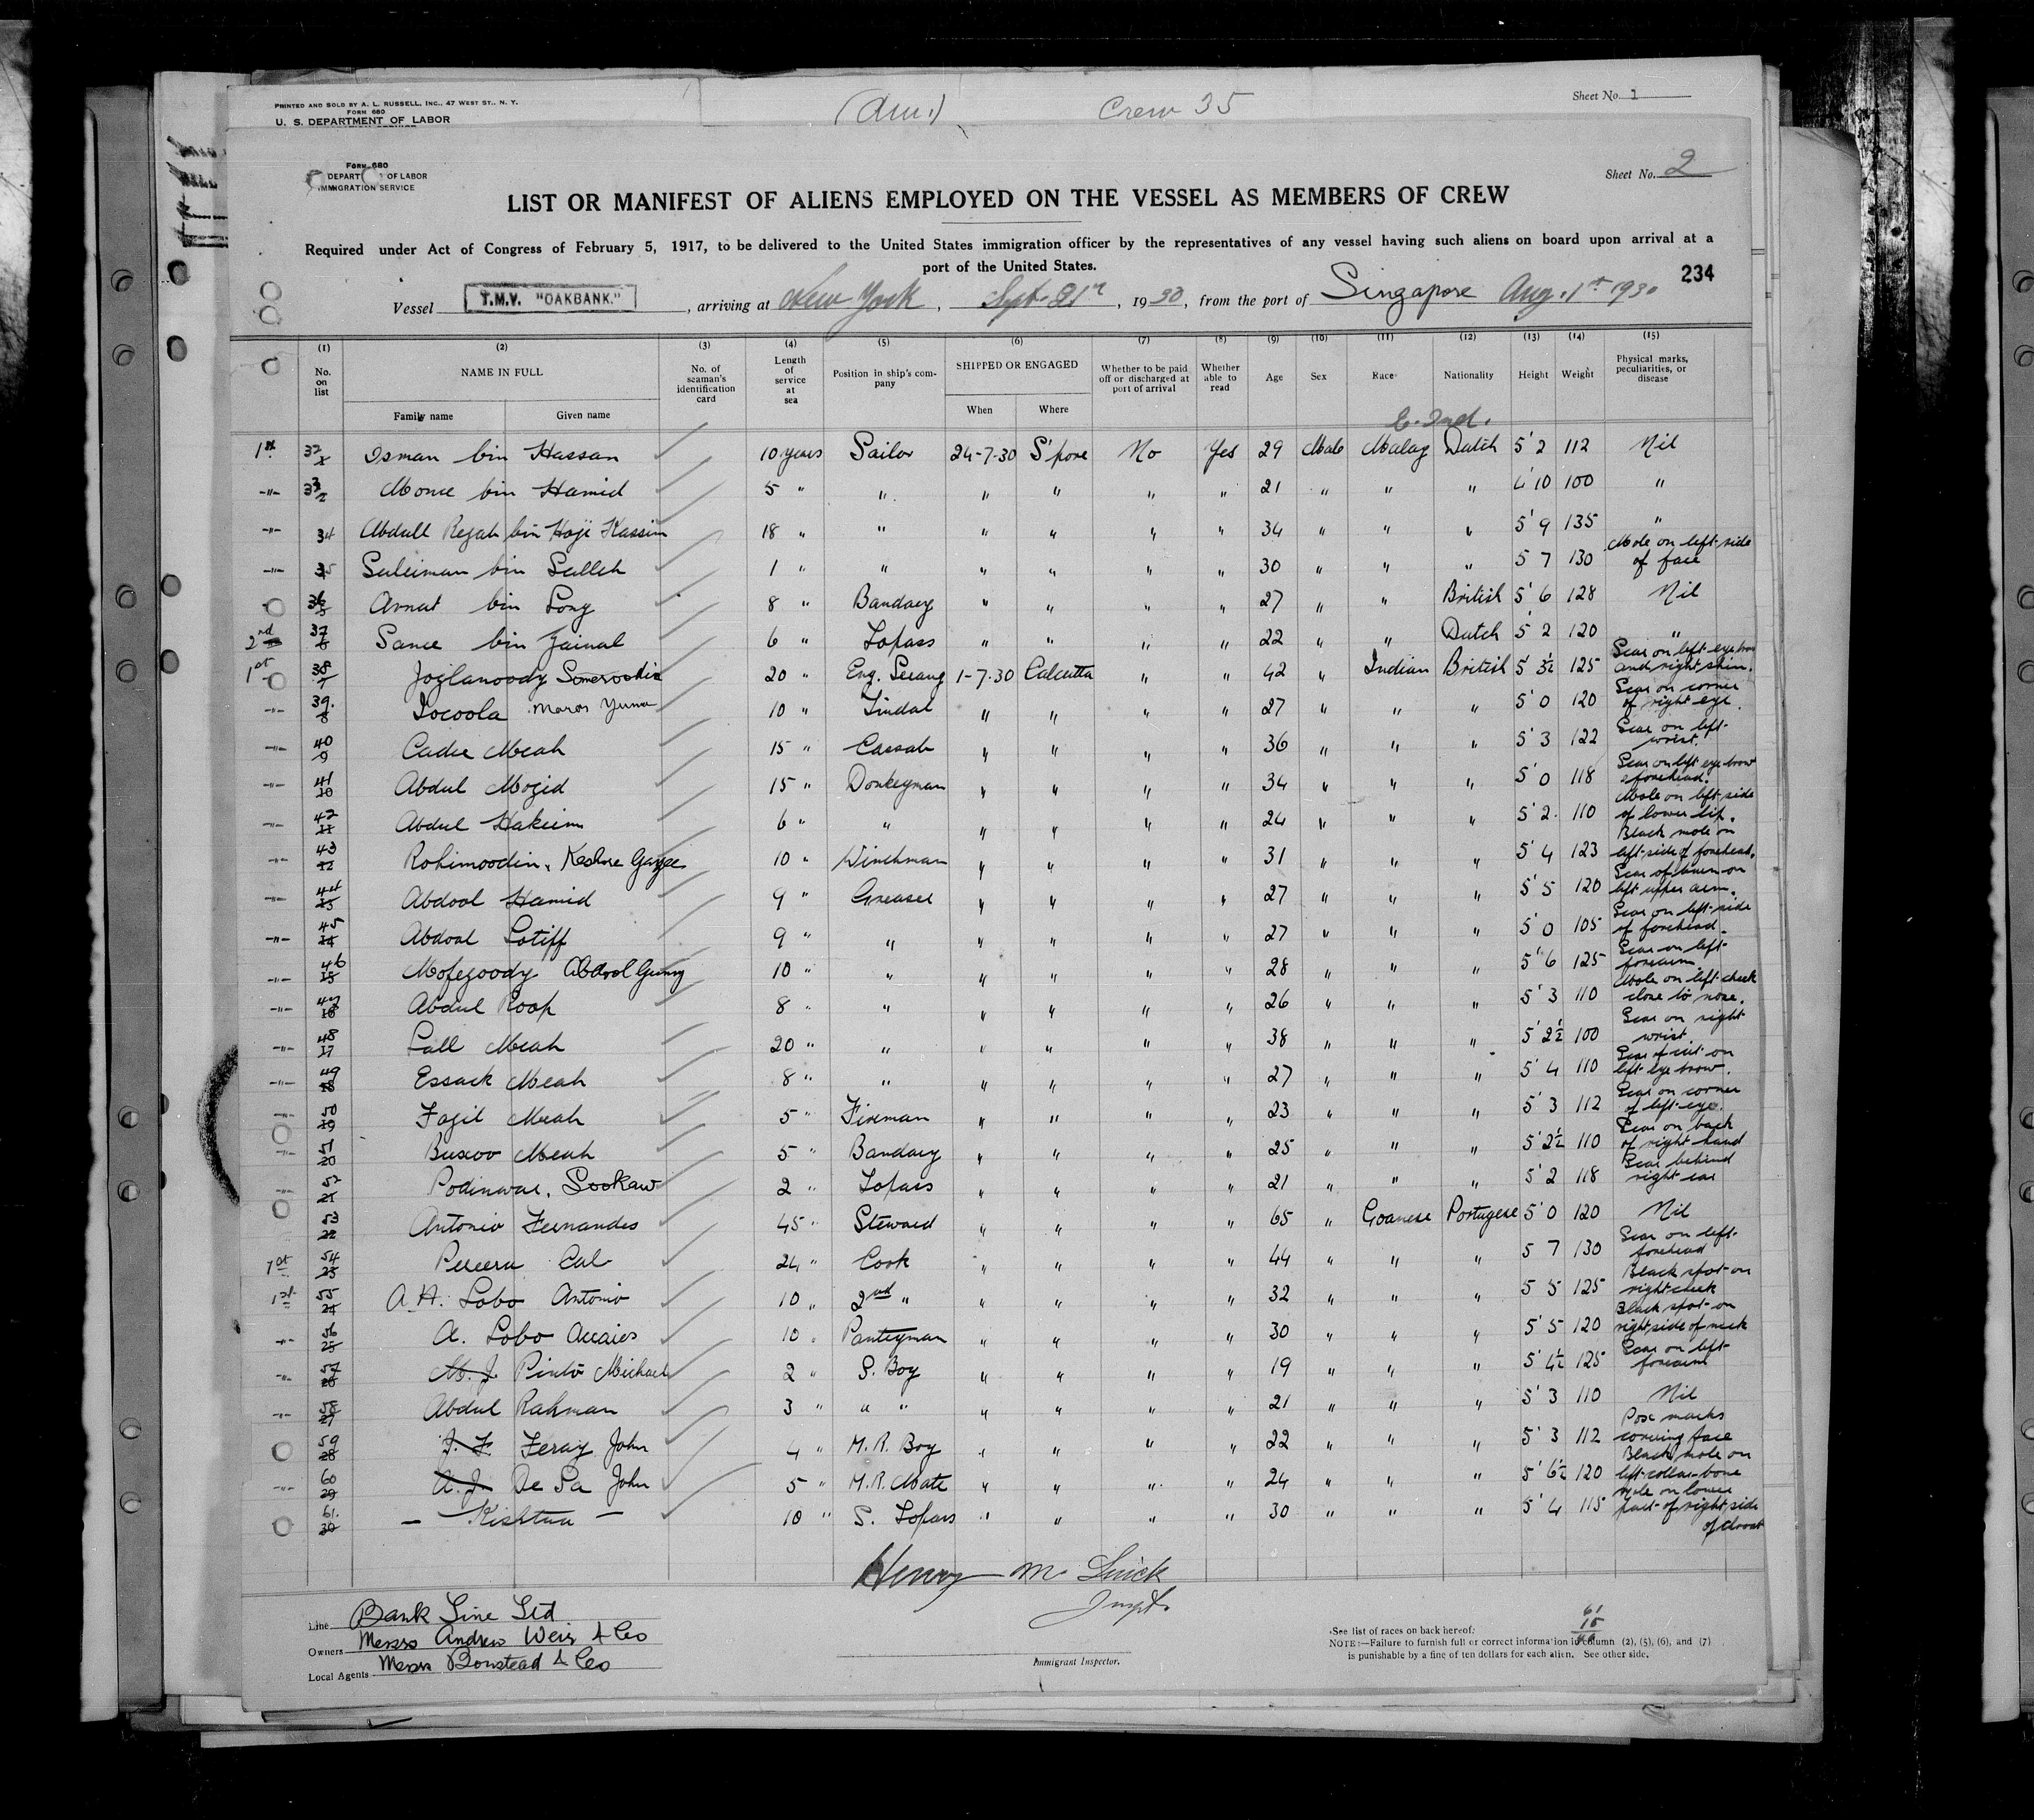 PRINTED AND SOLD BY A. L. RUSSELL, INC., 47 WEST ST., N. Y.
FORM 680
U. S. DEPARTMENT OF LABOR
Crew 35
Sheet No. 1
FORM 680
DEPART OF LABOR
IMMIGRATION SERVICE
Sheet No. 2
LIST OR MANIFEST OF ALIENS EMPLOYED ON THE VESSEL AS MEMBERS OF CREW
Required under Act of Congress of February 5, 1917, to be delivered to the United States immigration officer by the representatives of any vessel having such aliens on board upon arrival at a
port of the United States.
234
Vessel T.M.V. "OAKBANK." , arriving at New York , Sept. , 1930 , from the port of Singapore Aug. 1st 1930
(1) (2) (3) (4) (5) (6) (7) (8) (9) (10) (11) (12) (13) (14) (15)
No. on list NAME IN FULL Family name Given name No. of seaman's identification card Length of service at sea Position in ship's company SHIPPED OR ENGAGED When Where Whether to be paid off or discharged at port of arrival Whether able to read Age Sex Race Nationality Height Weight Physical marks, peculiarities, or disease
E. Ind.
1st 32 Osman bin Hassan 10 years Sailor 24-7-30 S'pore No Yes 29 Male Malay Dutch 5' 2 112 Nil
-"- 33 Monce bin Hamid 5 " " " " " " 21 " " " 4' 10 100 "
-"- 34 Abdull Regah bin Hoji Kassim 18 " " " " " " 34 " " " 5' 9 135 "
-"- 35 Suleiman bin Salleh 1 " " " " " " 30 " " " 5 7 130 Mole on left side of face
36 Arnat bin Long 8 " Bandary " " " " 27 " " British 5' 6 128 Nil
2nd 37 Sance bin Zainal 6 " Topass " " " " 22 " " Dutch 5' 2 120 "
1st 38 Joglanoody Someroodin 20 " Eng. Serang 1-7-30 Calcutta " " 42 " Indian British 5' 3½ 125 Scar on left eye brow and right shin.
-"- 39. Tocoola 10 " Tindal " " " " 27 " " " 5' 0 120 Scar on corner of right eye.
-"- 40 Cadie Meah 15 " Cassab " " " " 36 " " " 5' 3 122 Scar on left wrist.
-"- 41 Abdul Mozid 15 " Donkeyman " " " " 34 " " " 5' 0 118 Scar on left eye brow & forehead.
-"- 42 Abdul Hakim 6 " " " " " " 24 " " " 5' 2 110 Mole on left side of lower lip.
-"- 43 Rohimoodin, Keshne Gazee 10 " Winchman " " " " 31 " " " 5' 4 123 Black mole on left side of forehead.
-"- 44 Abdool Hamid 9 " Greaser " " " " 27 " " " 5' 5 120 Scar of burn on left upper arm.
-"- 45 Abdool Lotiff 9 " " " " " " 27 " " " 5' 0 105 Scar on left side of forehead.
-"- 46 Mofegoody Abdool Gunny 10 " " " " " " 28 " " " 5' 6 125 Scar on left forearm.
-"- 47 Abdul Roop 8 " " " " " " 26 " " " 5' 3 110 Mole on left cheek close to nose.
-"- 48 Lall Meah 20 " " " " " " 38 " " " 5' 2½ 100 Scar on right wrist.
-"- 49 Essack Meah 8 " " " " " " 27 " " " 5' 4 110 Scar of cut on left eye brow.
-"- 50 Fazil Meah 5 " Fireman " " " " 23 " " " 5' 3 112 Scar on corner of left eye.
-"- 51 Buxoo Meah 5 " Bandary " " " " 25 " " " 5' 2½ 110 Scar on back of right hand
-"- 52 Podinwar, Sookaw 2 " Topass " " " " 21 " " " 5' 2 118 Scar behind right ear
53 Antonio Fernandes 45 " Steward " " " " 65 " Goanese Portugese 5' 0 120 Nil
1st 54 Pereera Cal 24 " Cook " " " " 44 " " " 5 7 130 Scar on left forehead
1st 55 A. H. Lobo Antonio 10 " 2nd " " " " " 32 " " " 5 5 125 Black spot on right cheek
-"- 56 A. Lobo 10 " Pantryman " " " " 30 " " " 5' 5 120 Black spot on right side of neck
-"- 57 M. J. Pinto Michael 2 " S. Boy " " " " 19 " " " 5' 4½ 125 Scar on left forearm
-"- 58 Abdul Rahman 3 " " " " " " " 21 " " " 5' 3 110 Nil
59 J. F. Feray John 4 " M. R. Boy " " " " 22 " " " 5' 3 112 Pox marks covering face
-"- 60 A. J. De Sa John 5 " M. R. Mate " " " " 24 " " " 5' 6½ 120 Black mole on left collar bone
61. - Kishtna - 10 " S. Topass " " " " 30 " " " 5' 4 115 Mole on lower part of right side of throat
Henry M.
Inspt.
Line Bank Line Ltd
Owners Messrs Andrew Weir & Co
Local Agents Messrs Boustead & Co
Immigrant Inspector.
61
15
See list of races on back hereof.
NOTE:—Failure to furnish full or correct information in column (2), (5), (6), and (7)
is punishable by a fine of ten dollars for each alien. See other side.